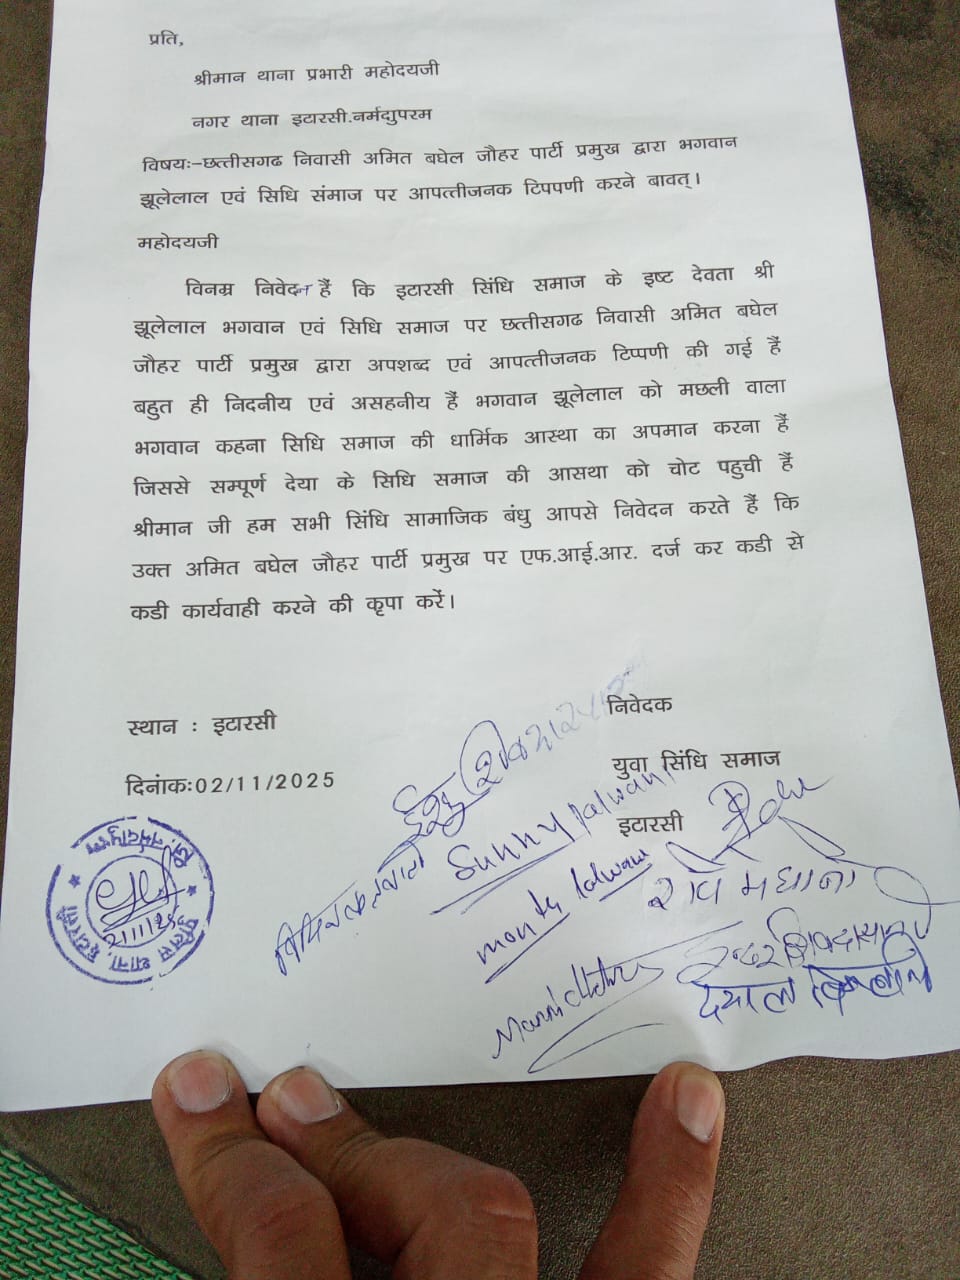 प्रति,
श्रीमान थाना प्रभारी महोदयजी
नगर थाना इटारसी.नर्मद्युपरम
विषयः–छत्तीसगढ निवासी अमित बघेल जौहर पार्टी प्रमुख द्वारा भगवान
झूलेलाल एवं सिधि संमाज पर आपत्तीजनक टिपपणी करने बावत्।
महोदयजी
विनम्र निवेदन हैं कि इटारसी सिंधि समाज के इष्ट देवता श्री
झूलेलाल भगवान एवं सिधि समाज पर छत्तीसगढ निवासी अमित बघेल
जौहर पार्टी प्रमुख द्वारा अपशब्द एवं आपत्तीजनक टिप्पणी की गई हैं
बहुत ही निदनीय एवं असहनीय हैं भगवान झूलेलाल को मछली वाला
भगवान कहना सिधि समाज की धार्मिक आस्था का अपमान करना हैं
जिससे सम्पूर्ण देया के सिधि समाज की आसथा को चोट पहुची हैं
श्रीमान जी हम सभी सिंधि सामाजिक बंधु आपसे निवेदन करते हैं कि
उक्त अमित बघेल जौहर पार्टी प्रमुख पर एफ.आई.आर. दर्ज कर कडी से
कडी कार्यवाही करने की कृपा करें।
निवेदक
स्थान : इटारसी
युवा सिंधि समाज
दिनांकः02/11/2025
इटारसी
Sunny lalwani
monty lalwani
रवि मधानी
दयाल
पुलिस थाना, इटारसी
जि. नर्मदापुरम